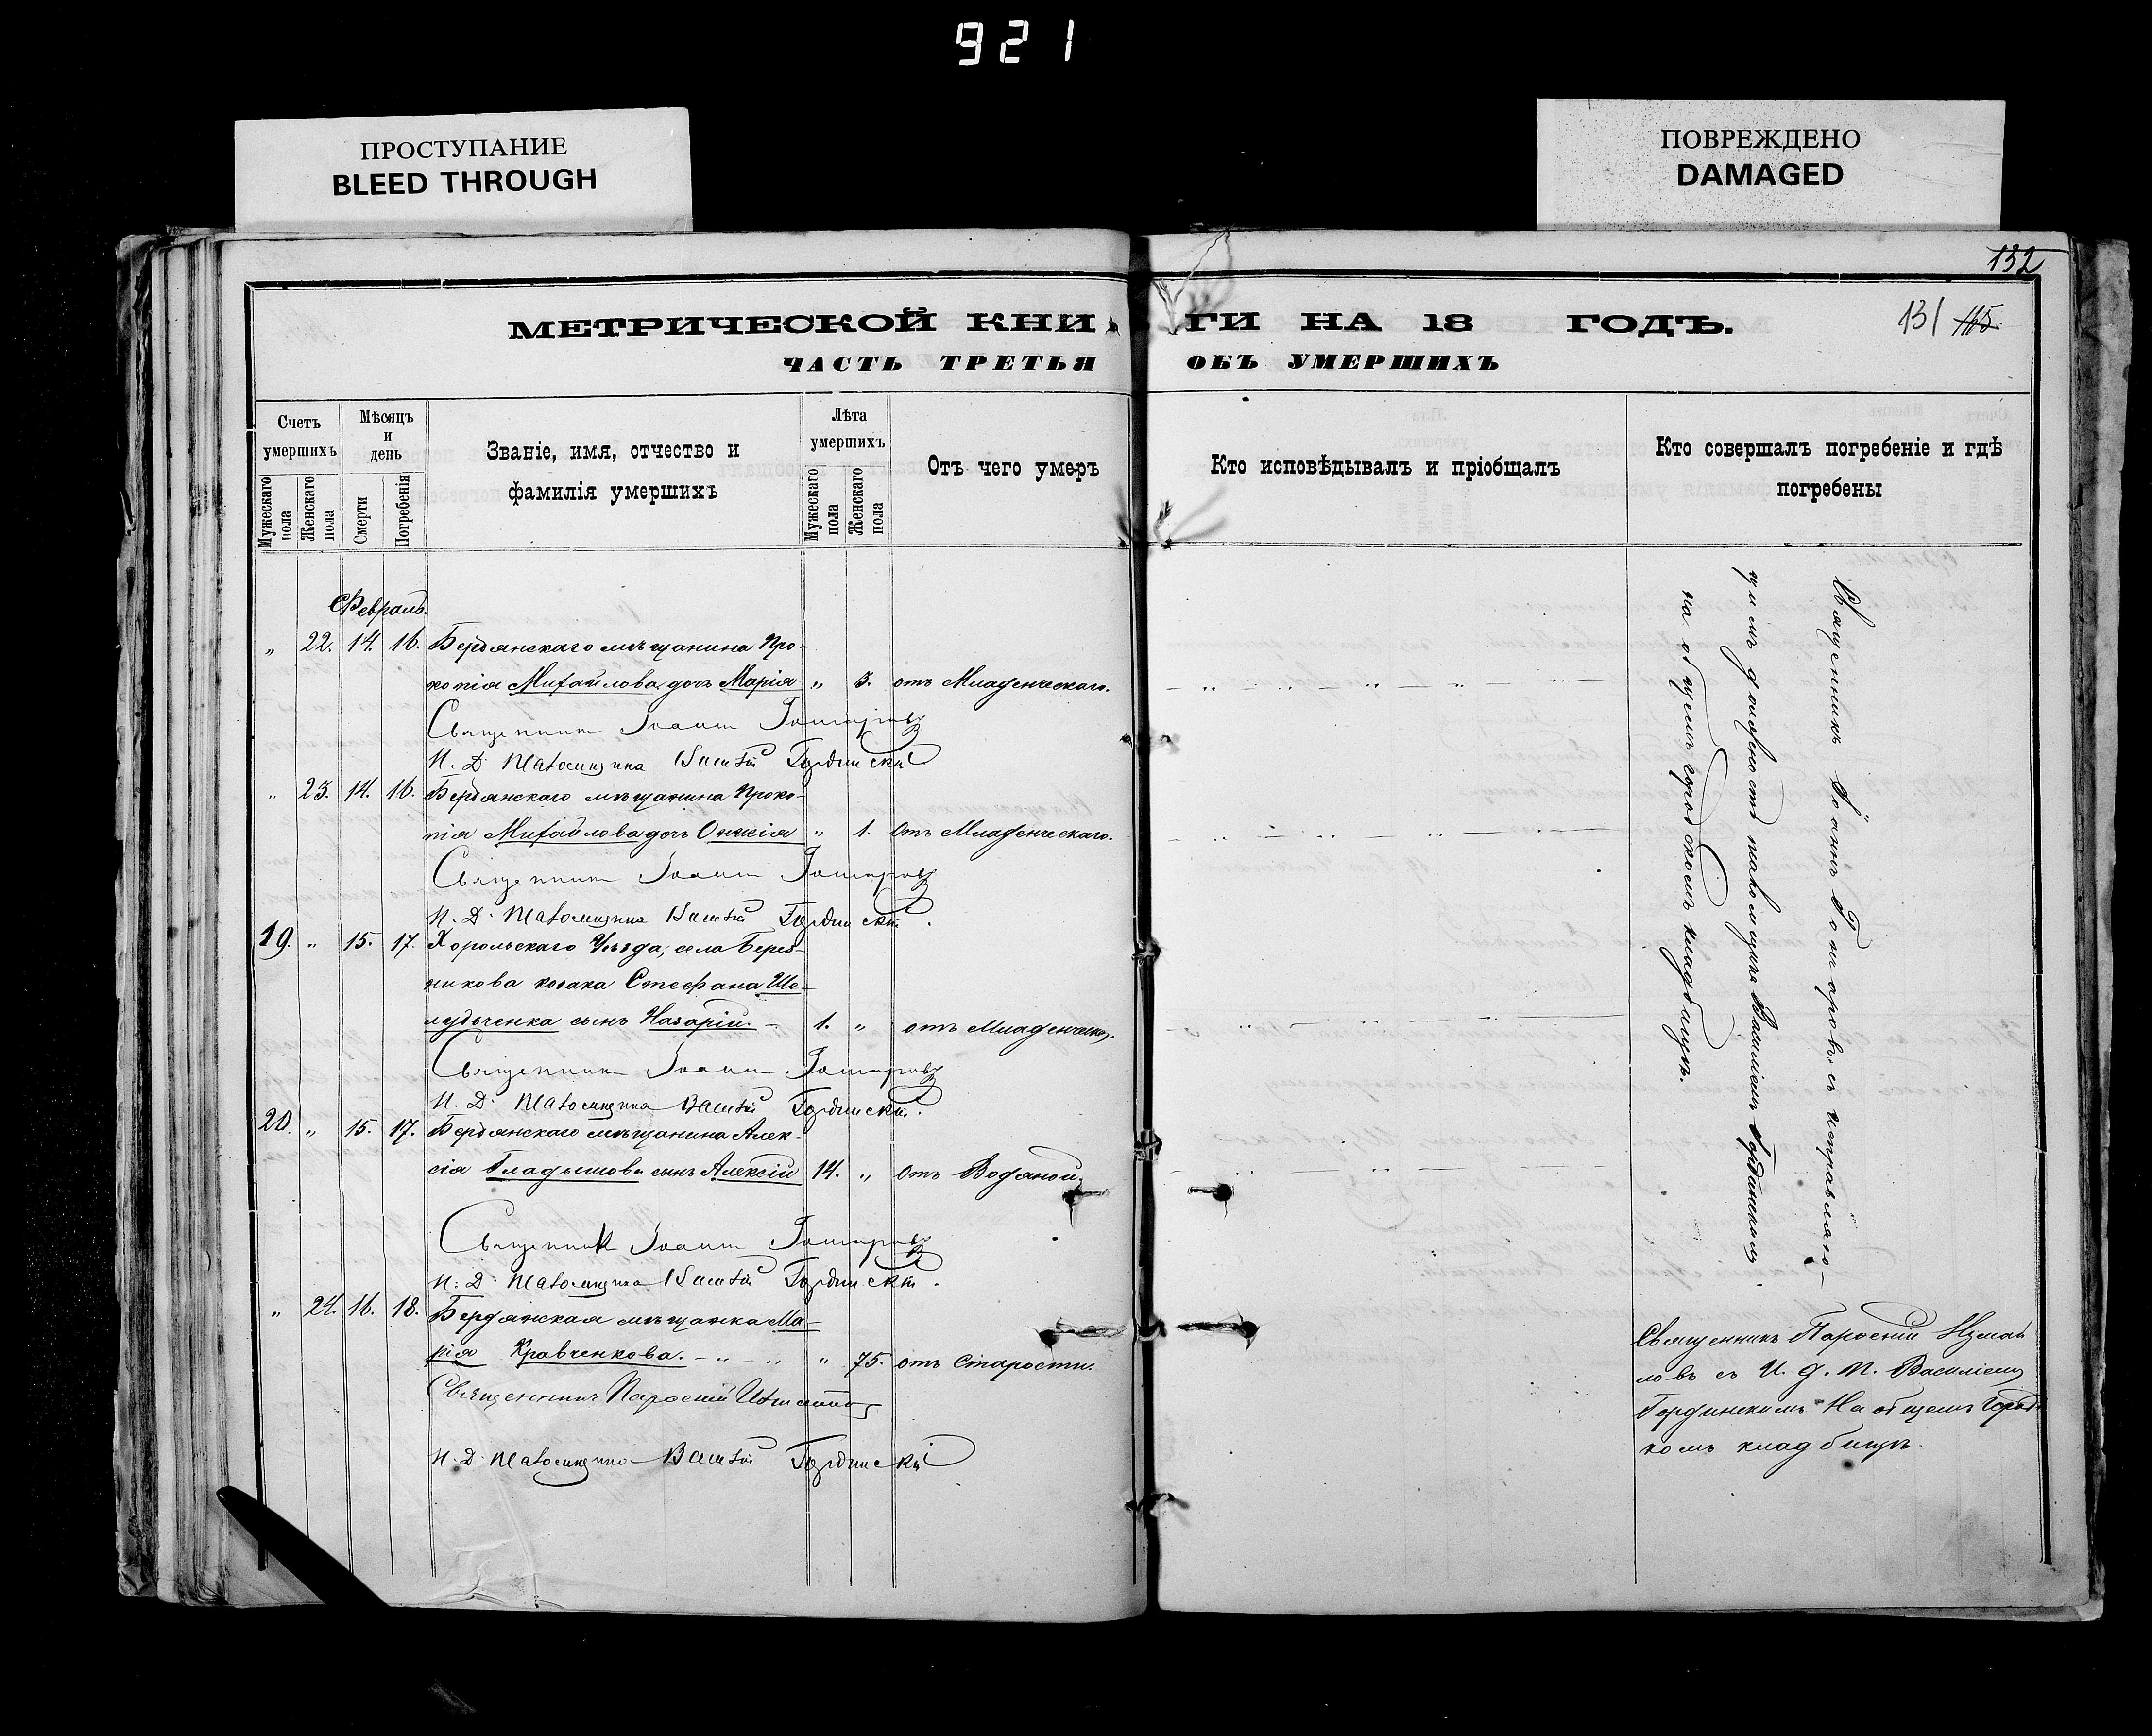 921
ПРОСТУПАНИЕ
BLEED THROUGH
ПОВРЕЖДЕНО
DAMAGED
132
131 165.
МЕТРИЧЕСКОЙ КНИГИ НА 18 ГОДЪ.
ЧАСТЬ ТРЕТЬЯ ОБЪ УМЕРШИХЪ
Счетъ умершихъ
Мужескаго пола
Женскаго пола
Мѣсяцъ и день
Смерти
Погребенія
Званіе, имя, отчество и
фамилія умершихъ
Лѣта умершихъ
Мужескаго пола
Женскаго пола
Отъ чего умеръ
Кто исповѣдывалъ и пріобщалъ
Кто совершалъ погребеніе и гдѣ
погребены
Февраль.
„ 22. 14. 16. Бердянскаго мѣщанина Про-
копія Михайлова дочь Марія „ 3. отъ Младенческаго.
Священникъ Іоаннъ
И. Д. Псаломщика Василій Гординскій
„ 23. 14. 16. Бердянскаго мѣщанина Проко-
пія Михайлова дочь „ 1. отъ Младенческаго.
Священникъ Іоаннъ
И. Д. Псаломщика Василій Гординскій.
19. „ 15. 17. Хорольскаго Уѣзда, села
козака Стефана Ше-
лудъченка сынъ Назарій. 1. „ отъ Младенческ.
Священникъ Іоаннъ
И. Д. Псаломщика Василій Гординскій.
20. „ 15. 17. Бердянскаго мѣщанина Алек-
сія Гладышова сынъ Алексій 14. „ отъ Водяной.
Священникъ Іоаннъ
И. Д. Псаломщика Василій Гординскій.
„ 24. 16. 18. Бердянская мѣщанка Ма-
рія Кравченкова. „ 75. отъ Старости.
Священникъ Парѳеній Измайловъ
И. Д. Псаломщика Василій Гординскій
Священникъ Іоаннъ съ исправляю-
щимъ должность псаломщика Василіемъ Гординскимъ
на общемъ городскомъ кладбищѣ.
Священникъ Парѳеній Измай
ловъ съ И. д. П. Василіемъ
Гординскимъ На общемъ Городс
комъ кладбищѣ.